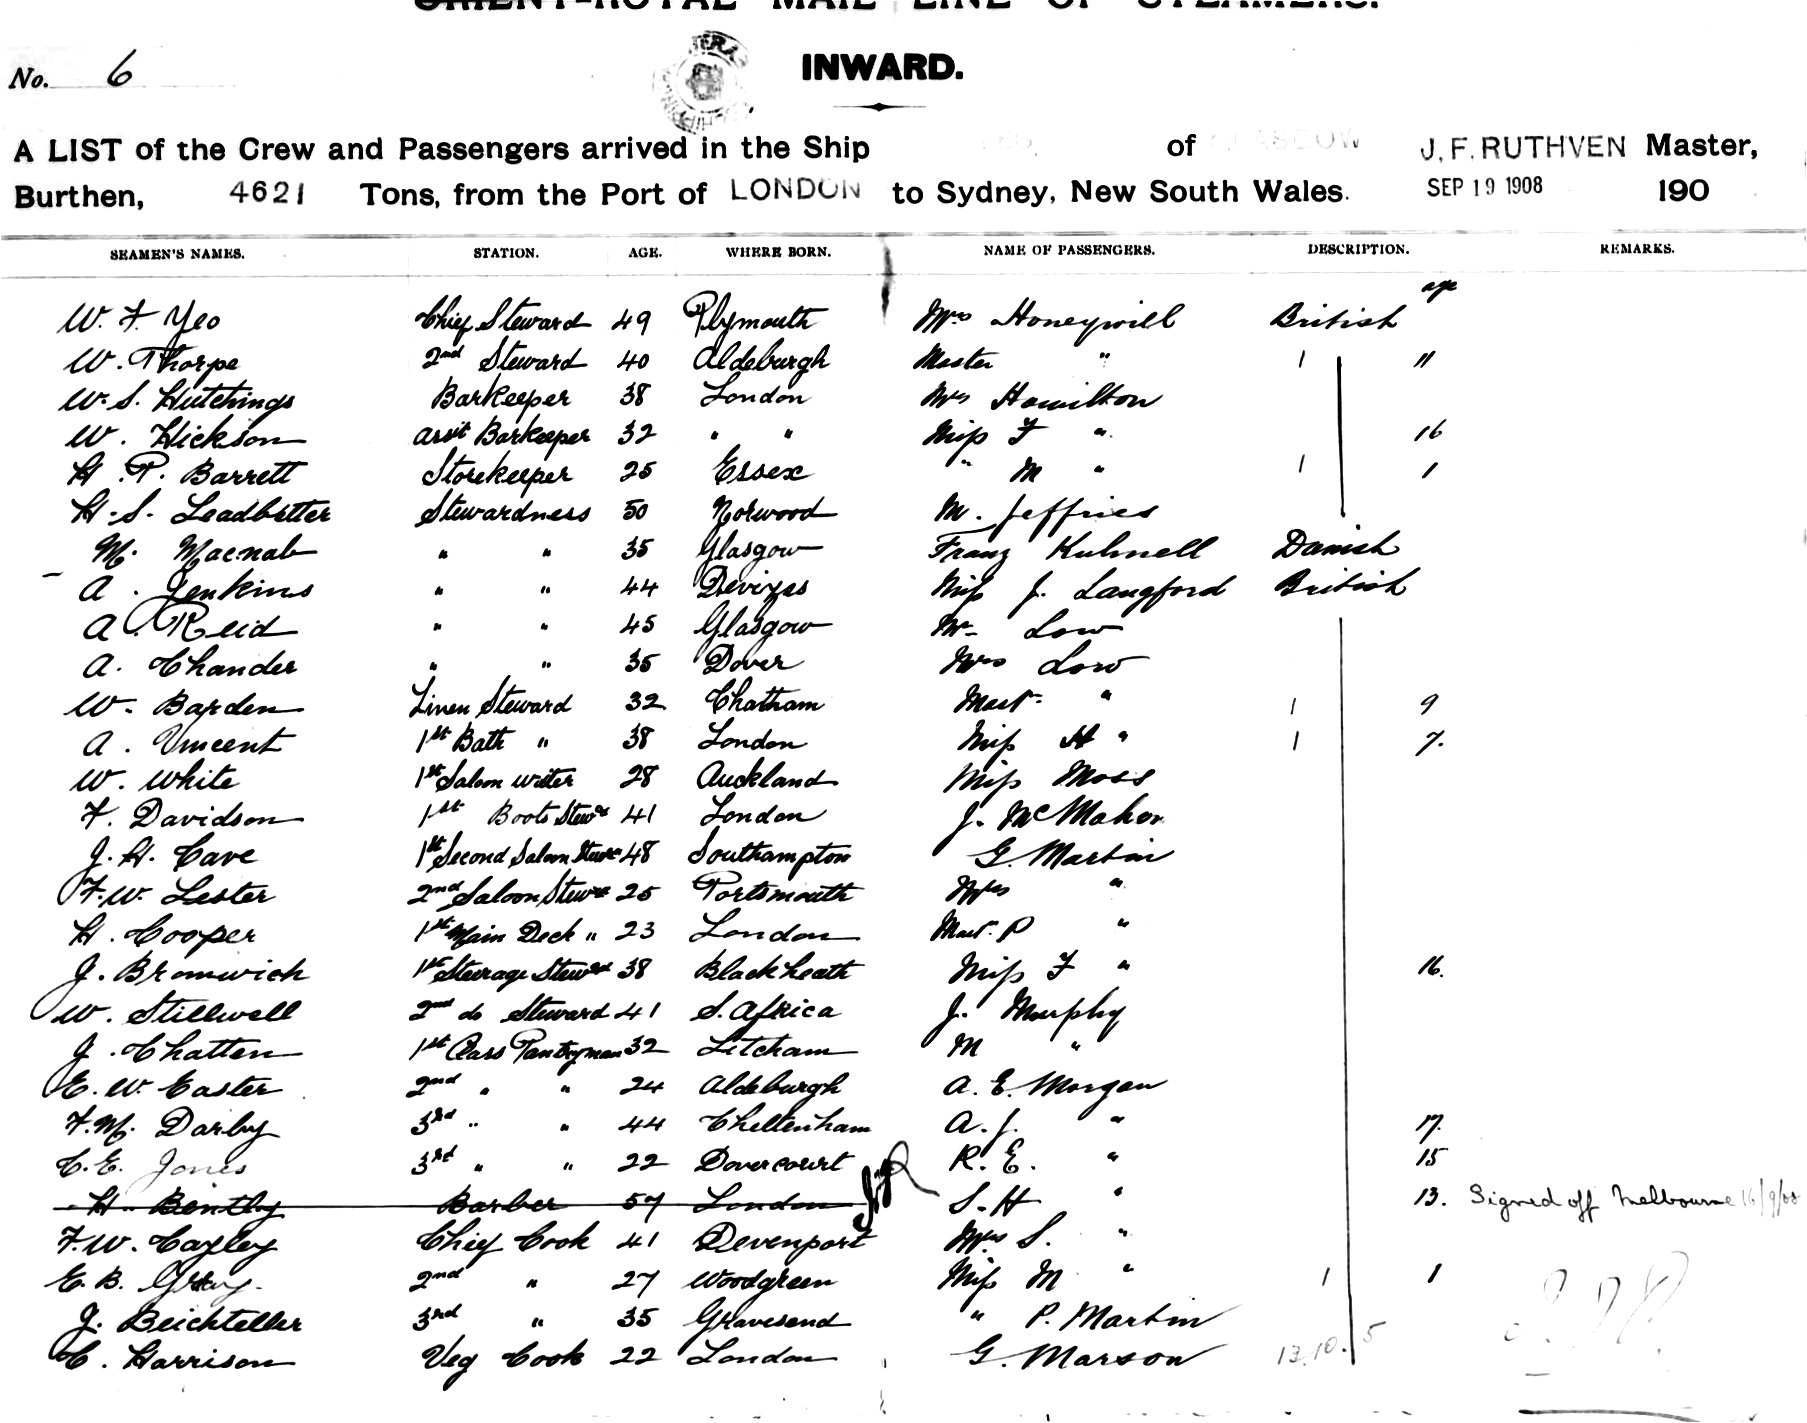 ORIENT-ROYAL MAIL LINE OF STEAMERS.
No. 6
INWARD.
A LIST of the Crew and Passengers arrived in the Ship of GLASGOW J. F. RUTHVEN Master,
Burthen, 4621 Tons, from the Port of LONDON to Sydney, New South Wales. SEP 19 1908 190
SEAMEN'S NAMES. STATION. AGE. WHERE BORN. NAME OF PASSENGERS. DESCRIPTION. REMARKS.
age
W. F. Yeo Chief Steward 49 Plymouth Mrs Honeywill British
W. Thorpe 2nd Steward 40 Aldeburgh Master " 1 11
W. S. Hutchings Barkeeper 38 London Mrs Hamilton
W. Hickson Assit Barkeeper 32 " " Miss F " 16
H. P. Barrett Storekeeper 25 Essex " M " 1 1
H. S. Leadbetter Stewardness 50 Norwood M. Jeffries
M. Macnab " " 35 Glasgow Franz Kuhnell Danish
A. Jenkins " " 44 Devizes Miss J. Langford British
A. Reid " " 45 Glasgow Mr Low
A. Chander " " 35 Dover Mrs Low
W. Barden Linen Steward 32 Chatham Mast. " 1 9
A. Vincent 1st Bath " 38 London Miss H " 1 7.
W. White 1st Saloon writer 28 Auckland Miss Moss
F. Davidson 1st Boots Stewd 41 London J. McMahon
J. H. Cave 1st Second Saloon Stewd 48 Southampton G. Martin
F. W. Lester 2nd Saloon Stewd 25 Portsmouth Mrs "
H. Cooper 1st Main Deck " 23 London Mast. P "
J. Bromwich 1st Steerage Stewd 38 Blackheath Miss F " 16.
W. Stillwell 2nd do Steward 41 S. Africa J. Murphy
J. Chatten 1st Class Pantryman 32 Litcham M "
E. W. Easter 2nd " " 24 Aldeburgh A. E. Morgan
F. M. Darby 3rd " " 44 Cheltenham A. J. " 17.
C. E. Jones 3rd " " 22 Dovercourt R. E. " 15
H. Bently Barber 57 London S. H " 13. Signed off Melbourne 16/9/08
F. W. Cayley Chief Cook 41 Devenport Mrs S. "
E. B. Gray. 2nd " 27 Woodgreen Miss M " 1 1
J. Beichteller 3rd " 35 Gravesend " P. Martin
C. Harrison Veg Cook 22 London G. Marson 13. 10. 5